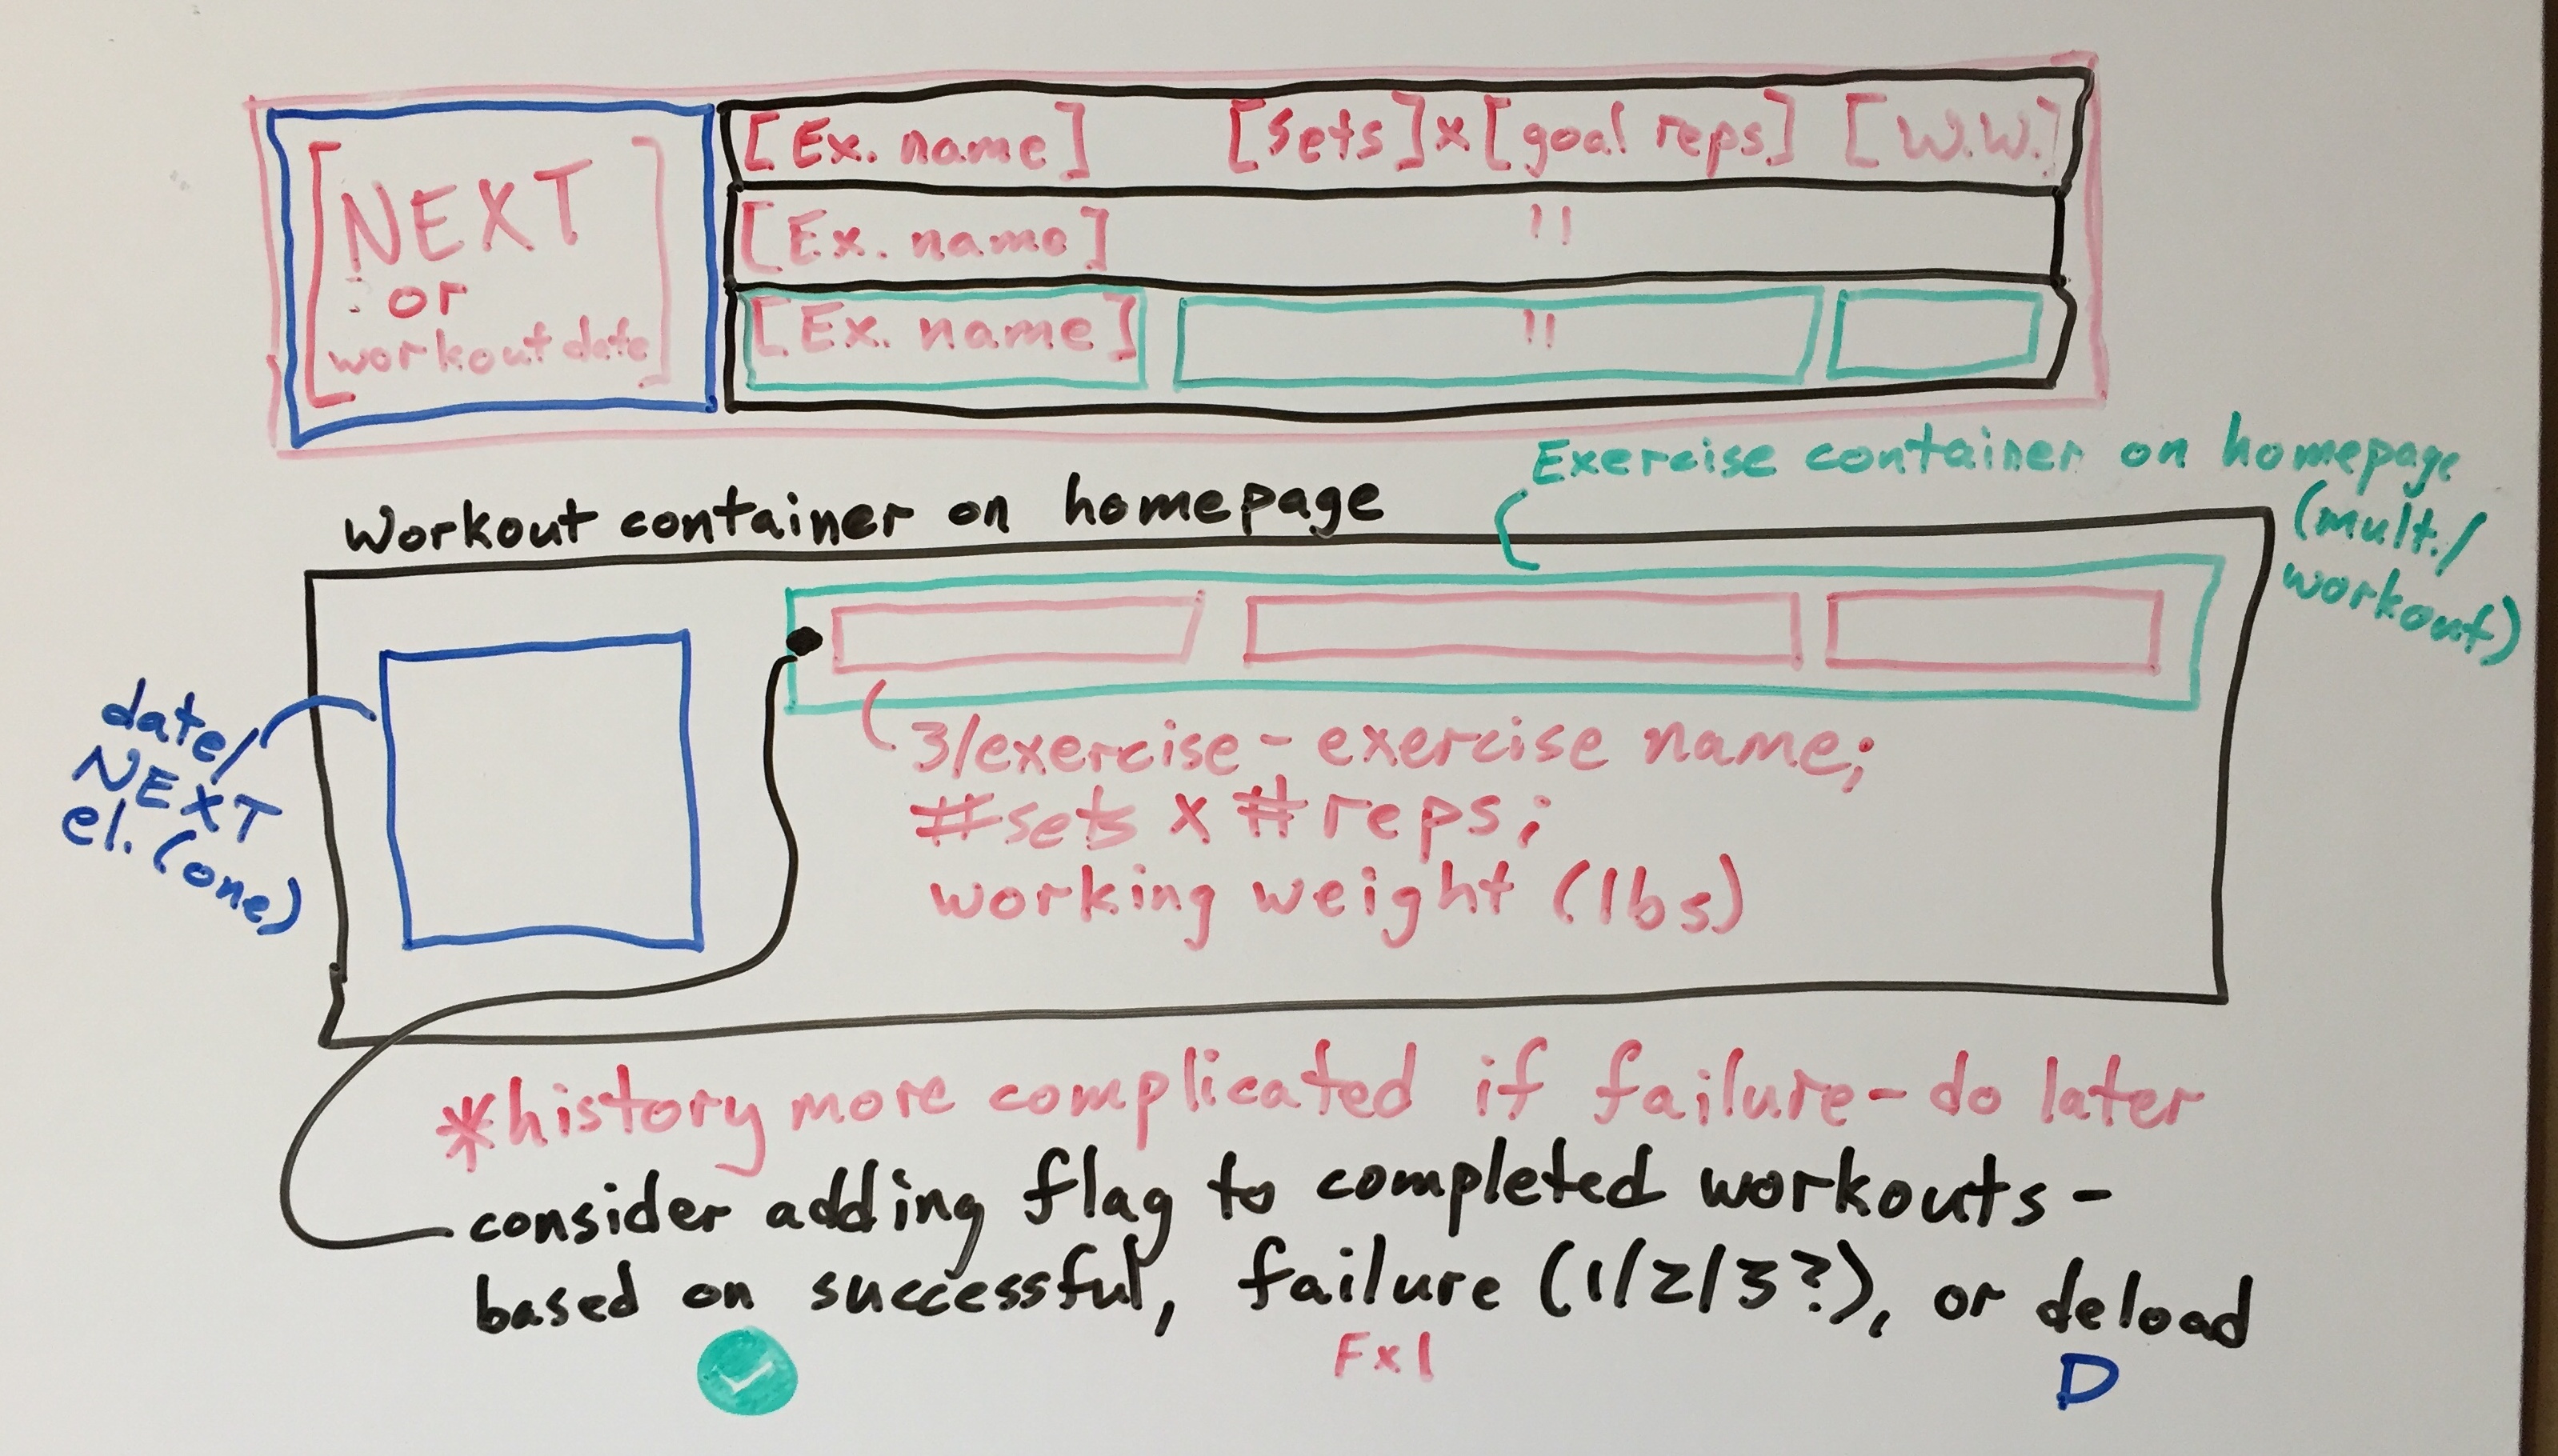 [NEXT
or
workout date]
[Ex. name] [sets]x[goal reps] [W.W.]
[Ex. name] "
[Ex. name] "
Exercise container on homepage
(mult./
workout)
Workout container on homepage
date/
NEXT
el. (one)
3/exercise - exercise name;
#sets x #reps;
working weight (lbs)
*history more complicated if failure - do later
consider adding flag to completed workouts -
based on successful, failure (1/2/3?), or deload
✓ Fx1 D